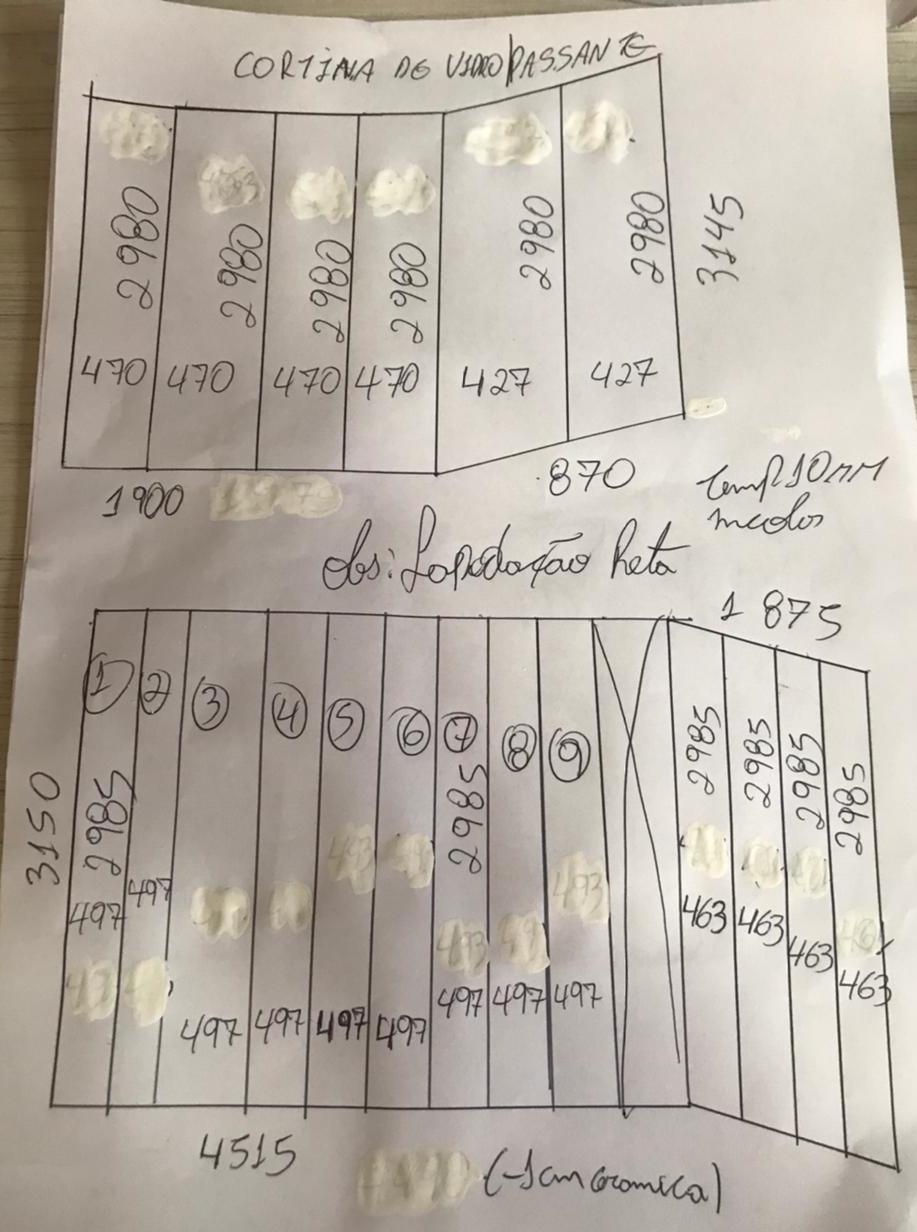 CORTINA DE VIDRO PASSANTE
2980 2980 2980 2980 2980 2980 3145
470 470 470 470 427 427
1900 870
temp 10mm
incolor
obs: Lapidação Reta
1 875
1 2 3 4 5 6 7 8 9
3150 2985 2985 2985 2985 2985 2985
497 497 463 463 463 463
497 497 497 497 497 497 497
4515
(-1cm ceramica)